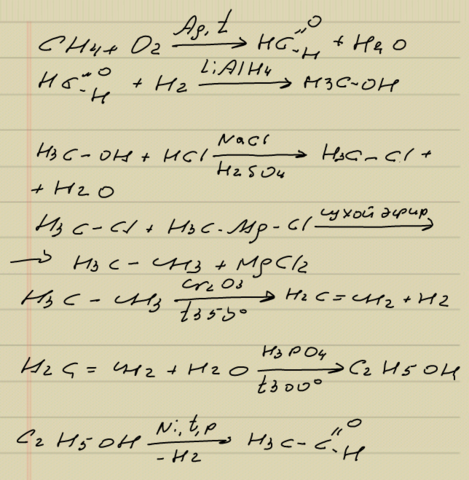 CH4 + O2 Ag, t → HC=O -H + H2O
HC=O -H + H2 LiAlH4 → H3C-OH
H3C-OH + HCl NaCl H2SO4 → H3C-Cl +
+ H2O
H3C-Cl + H3C-Mg-Cl сухой эфир →
→ H3C-CH3 + MgCl2
H3C-CH3 Cr2O3 t350° → H2C=CH2 + H2
H2C=CH2 + H2O H3PO4 t300° → C2H5OH
C2H5OH Ni, t, p -H2 → H3C-C=O -H